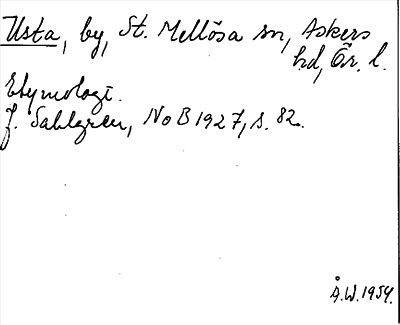 Usta, by, St. Mellösa sn, Askers
hd, Ör. l.
Etymologi.
J. Sahlgren, NoB 1927, s. 82.
Å.W. 1954.